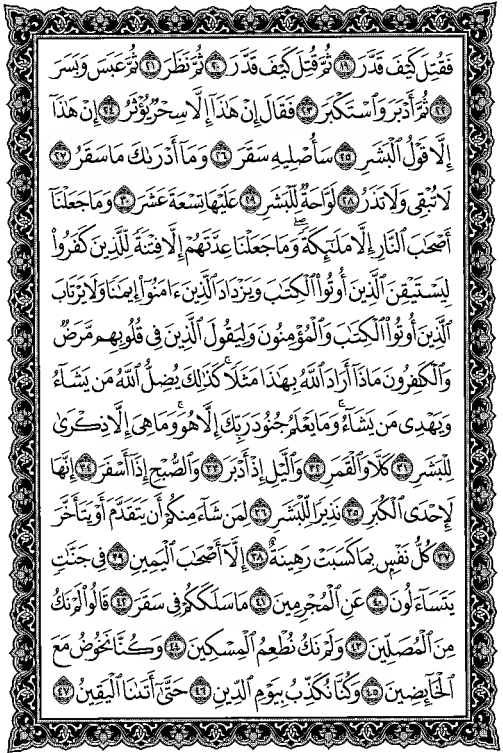 فَقُتِلَ كَيْفَ قَدَّرَ ١٩ ثُمَّ قُتِلَ كَيْفَ قَدَّرَ ٢٠ ثُمَّ نَظَرَ ٢١ ثُمَّ عَبَسَ وَبَسَرَ
٢٢ ثُمَّ أَدْبَرَ وَٱسْتَكْبَرَ ٢٣ فَقَالَ إِنْ هَٰذَآ إِلَّا سِحْرٌ يُؤْثَرُ ٢٤ إِنْ هَٰذَآ
إِلَّا قَوْلُ ٱلْبَشَرِ ٢٥ سَأُصْلِيهِ سَقَرَ ٢٦ وَمَآ أَدْرَىٰكَ مَا سَقَرُ ٢٧
لَا تُبْقِى وَلَا تَذَرُ ٢٨ لَوَّاحَةٌ لِّلْبَشَرِ ٢٩ عَلَيْهَا تِسْعَةَ عَشَرَ ٣٠ وَمَا جَعَلْنَآ
أَصْحَٰبَ ٱلنَّارِ إِلَّا مَلَٰٓئِكَةً ۙ وَمَا جَعَلْنَا عِدَّتَهُمْ إِلَّا فِتْنَةً لِّلَّذِينَ كَفَرُوا۟
لِيَسْتَيْقِنَ ٱلَّذِينَ أُوتُوا۟ ٱلْكِتَٰبَ وَيَزْدَادَ ٱلَّذِينَ ءَامَنُوٓا۟ إِيمَٰنًا ۙ وَلَا يَرْتَابَ
ٱلَّذِينَ أُوتُوا۟ ٱلْكِتَٰبَ وَٱلْمُؤْمِنُونَ ۙ وَلِيَقُولَ ٱلَّذِينَ فِى قُلُوبِهِم مَّرَضٌ
وَٱلْكَٰفِرُونَ مَاذَآ أَرَادَ ٱللَّهُ بِهَٰذَا مَثَلًا ۚ كَذَٰلِكَ يُضِلُّ ٱللَّهُ مَن يَشَآءُ
وَيَهْدِى مَن يَشَآءُ ۚ وَمَا يَعْلَمُ جُنُودَ رَبِّكَ إِلَّا هُوَ ۚ وَمَا هِىَ إِلَّا ذِكْرَىٰ
لِلْبَشَرِ ٣١ كَلَّا وَٱلْقَمَرِ ٣٢ وَٱلَّيْلِ إِذْ أَدْبَرَ ٣٣ وَٱلصُّبْحِ إِذَآ أَسْفَرَ ٣٤ إِنَّهَا
لَإِحْدَى ٱلْكُبَرِ ٣٥ نَذِيرًا لِّلْبَشَرِ ٣٦ لِمَن شَآءَ مِنكُمْ أَن يَتَقَدَّمَ أَوْ يَتَأَخَّرَ
٣٧ كُلُّ نَفْسٍۭ بِمَا كَسَبَتْ رَهِينَةٌ ٣٨ إِلَّآ أَصْحَٰبَ ٱلْيَمِينِ ٣٩ فِى جَنَّٰتٍ
يَتَسَآءَلُونَ ٤٠ عَنِ ٱلْمُجْرِمِينَ ٤١ مَا سَلَكَكُمْ فِى سَقَرَ ٤٢ قَالُوا۟ لَمْ نَكُ
مِنَ ٱلْمُصَلِّينَ ٤٣ وَلَمْ نَكُ نُطْعِمُ ٱلْمِسْكِينَ ٤٤ وَكُنَّا نَخُوضُ مَعَ
ٱلْخَآئِضِينَ ٤٥ وَكُنَّا نُكَذِّبُ بِيَوْمِ ٱلدِّينِ ٤٦ حَتَّىٰٓ أَتَىٰنَا ٱلْيَقِينُ ٤٧